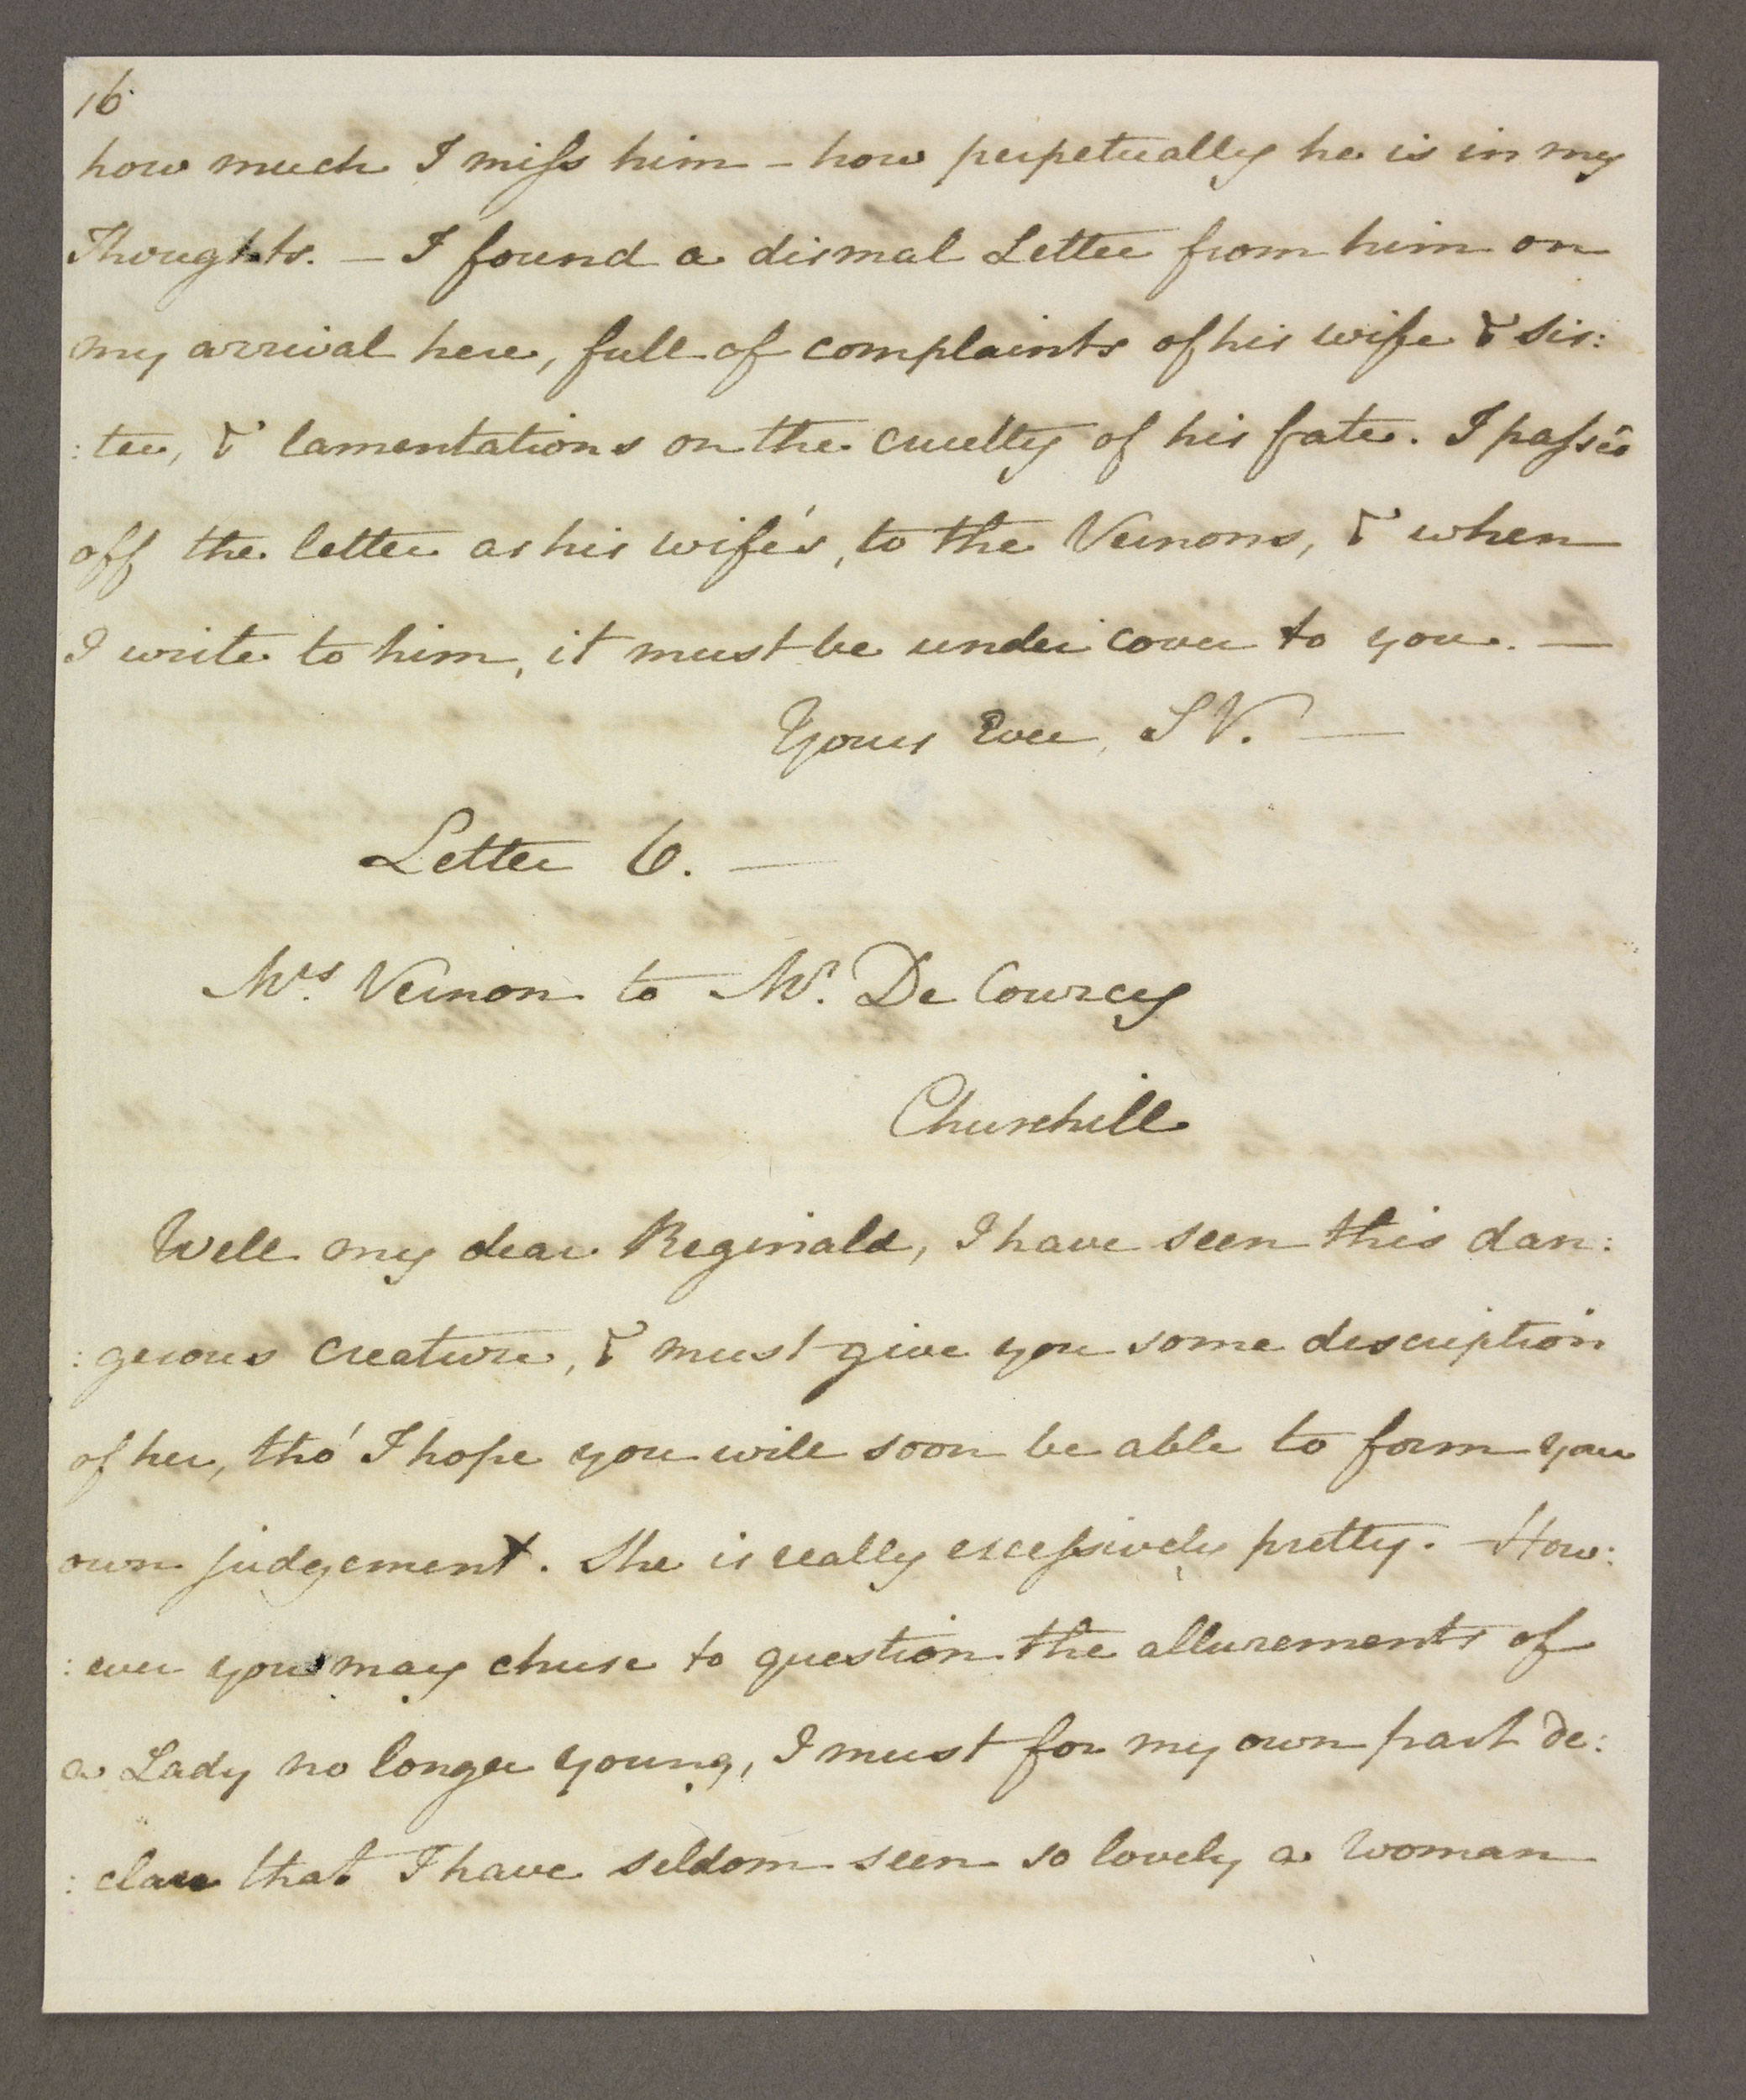 16
how much I miſs him – how perpetually he is in my
Thoughts. — I found a dismal Letter from him on
my arrival here, full of complaints of his wife & sis:
:ter, & lamentations on the cruelty of his fate. I paſsed
off the letter as his wife's, to the Vernons, & when
I write to him, it must be under cover to you. —
Yours Ever, S V. —
Letter 6. —
Mrs. Vernon to Mr. De Courcy
Churchill
Well my dear Reginald, I have seen this dan:
:gerous creature, & must give you some description
of her, tho' I hope you will soon be able to form your
own judgement. She is really exceſsively pretty. How:
:ever you may chuse to question the allurements of
a Lady no longer young, I must for my own part de:
:clare that I have seldom seen so lovely a Woman